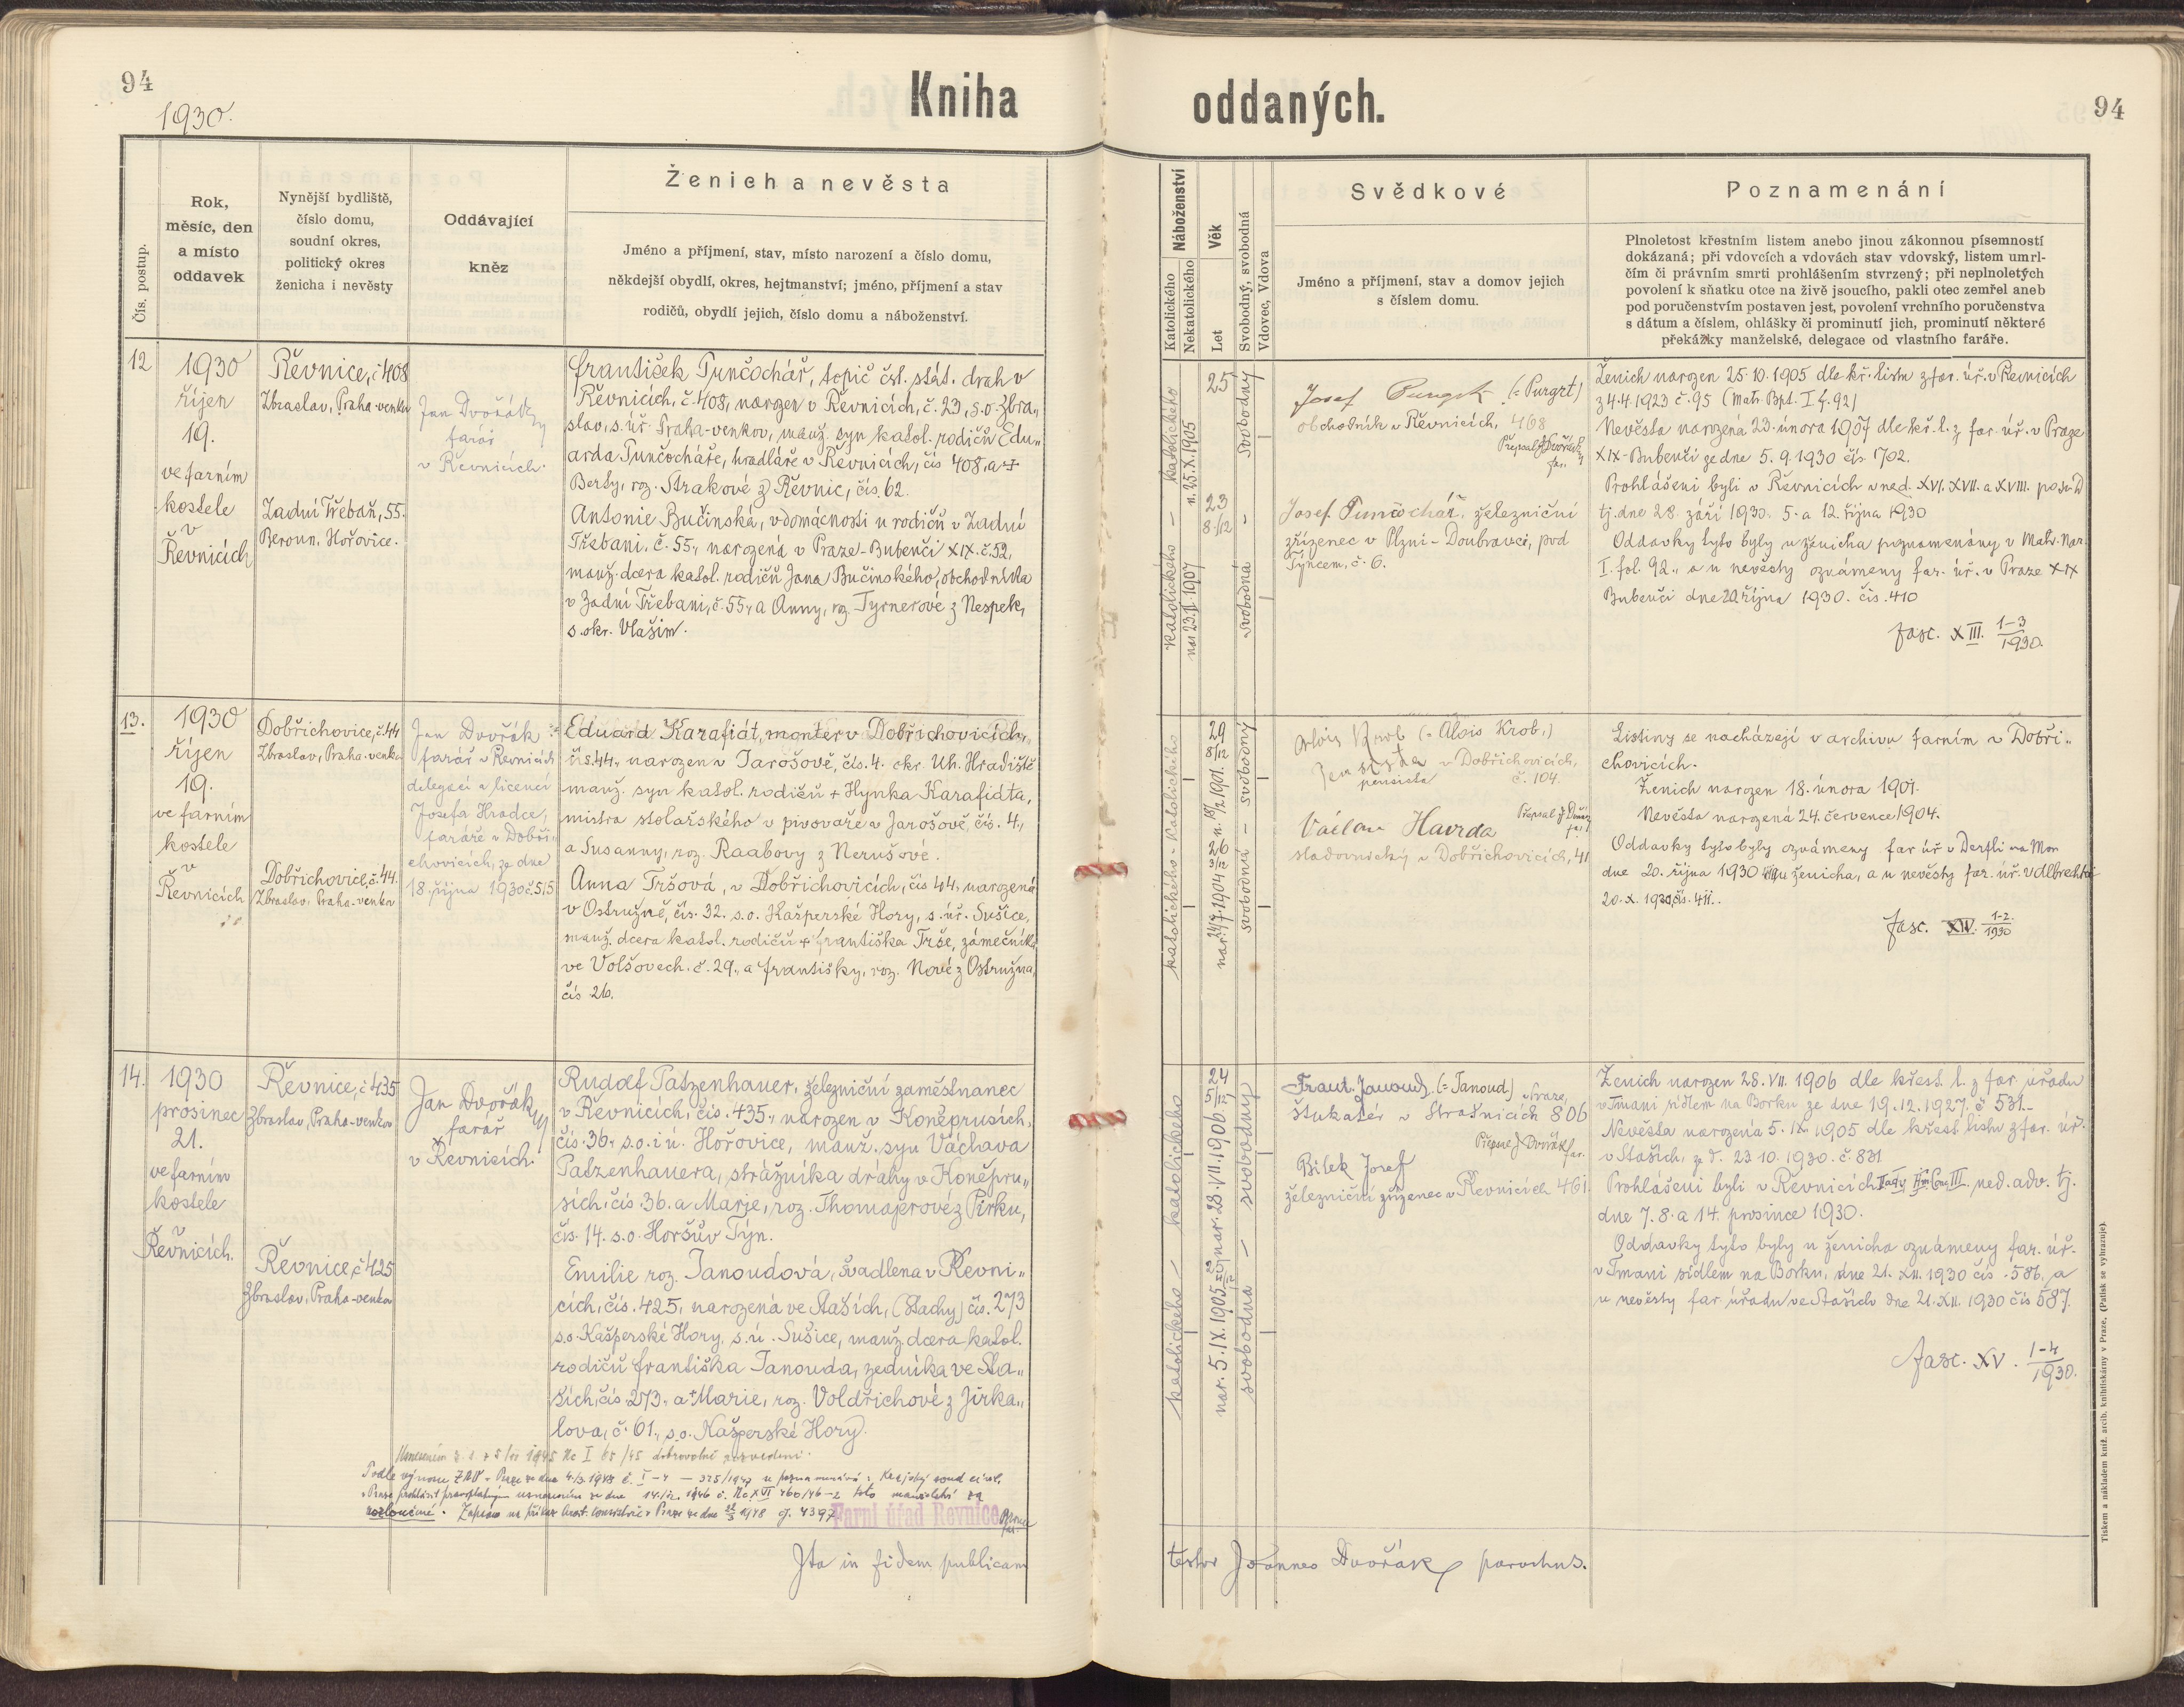 94
1930.
Kniha oddaných.
94
Čís. postup.
Rok,
měsíc, den
a místo
oddavek
Nynější bydliště,
číslo domu,
soudní okres,
politický okres
ženicha i nevěsty
Oddávající
kněz
Ženich a nevěsta
Jméno a příjmení, stav, místo narození a číslo domu,
někdejší obydlí, okres, hejtmanství; jméno, příjmení a stav
rodičů, obydlí jejich, číslo domu a náboženství.
Náboženství
Katolického
Nekatolického
Věk
Let
Svobodný, svobodná
Vdovec, Vdova
Svědkové
Jméno a příjmení, stav a domov jejich
s číslem domu.
Poznamenání
Plnoletost křestním listem anebo jinou zákonnou písemností
dokázaná; při vdovcích a vdovách stav vdovský, listem umrl-
čím či právním smrti prohlášením stvrzený; při neplnoletých
povolení k sňatku otce na živě jsoucího, pakli otec zemřel aneb
pod poručenstvím postaven jest, povolení vrchního poručenstva
s dátum a číslem, ohlášky či prominutí jich, prominutí některé
překážky manželské, delegace od vlastního faráře.
12
1930
říjen
19.
ve farním
kostele
v
Řevnicích
Řevnice, č 408
Zbraslav, Praha-venkov
Zadní Třebaň, 55.
Beroun. Hořovice.
Jan Dvořák
farář
v Řevnicích.
František Punčochář, topič čsl. stát. drah v
Řevnicích, č. 408, narozen v Řevnicích, č. 23, s. o. Zbra„
slav, s. úř. Praha-venkov, manž. syn katol. rodičů Edu„
arda Punčocháře, hradláře v Řevnicích, čís 408, a +
Berty, roz. Strakové z Řevnic, čís. 62.
Antonie Bučinská, v domácnosti u rodičů v Zadní
Třebani, č. 55, narozená v Praze-Bubenči XIX. č. 52,
manž. dcera katol. rodičů Jana Bučinského, obchodníka
v Zadní Třebani, č. 55, a Anny, roz. Tyrnerové z Nespek,
s. okr. Vlašim.
katolického – katolického
n. 25. X. 1905
nar 23. II. 1907
25
23
8/12
svobodný
–
svobodná
Josef Purgrt (= Purgrt)
obchodník v Řevnicích, 468
Přepsal J Dvořák
far.
Josef Punčochář, železniční
zřízenec v Plzni-Doubravci, pod
Týncem, č. 6.
Ženich narozen 25. 10. 1905 dle kř. listu z far. úř. v Řevnicích
z 4. 4. 1923 č. 95 (Matr. Bpt. I f. 92)
Nevěsta narozená 23. února 1907 dle kř. l. z far. úř. v Praze
XIX-Bubenči ze dne 5. 9. 1930 čís. 1702.
Prohlášeni byli v Řevnicích v ned. XVI. XVII. a XVIII. po sv. D
tj. dne 28. září 1930. 5. a 12. října 1930
Oddavky tyto byly u ženicha poznamenány v Matr. Nar.
I. fol. 92., a u nevěsty oznámeny far. úř. v Praze XIX
Bubenči dne 20. října 1930. čís. 410
fasc. XIII. 1-3/1930.
13.
1930
říjen
19.
ve farním
kostele
v
Řevnicích
Dobřichovice, č. 44
Zbraslav, Praha-venkov
Dobřichovice, č. 44.
Zbraslav, Praha-venkov
Jan Dvořák
farář v Řevnicích
delegací a licencí
Josefa Hradce,
faráře v Dobři„
chovicích, ze dne
18. října 1930 č. 515
Eduard Karafiát, montér v Dobřichovicích,
čís. 44, narozen v Jarošově, čís. 4. okr. Uh. Hradiště
manž. syn katol. rodičů + Hynka Karafiáta,
mistra stolařského v pivovaře v Jarošově, čís. 4.,
a Susanny, roz. Raabovy z Nerušové.
Anna Tršová, v Dobřichovicích, čís 44, narozená
v Ostružně, čís. 32. s. o. Kašperské Hory, s. úř. Sušice,
manž. dcera katol. rodičů + Františka Trše, zámečníka
ve Volšovech. č. 29., a Františky, roz. Nové z Ostružna,
čís. 26.
katolického – katolického
29
8/12
n. 18/2 1901.
26
3/12
nar. 24/7. 1904
svobodný
–
svobodná
Alois Krob (= Alois Krob,)
pensista v Dobřichovicích,
pensista č. 104.
Přepsal J Dvořák
far.
Václav Havrda
sladovnický v Dobřichovicích, 41
Listiny se nacházejí v archivu farním v Dobři„
chovicích.
Ženich narozen 18. února 1901.
Nevěsta narozená 24. července 1904.
Oddavky tyto byly oznámeny far úř v Derfli na Mor
dne 20. října 1930 u ženicha, a u nevěsty far. úř. v Albrechtic
20. X. 1930, čís. 411..
fasc. XIV. 1-2./1930
14.
1930
prosinec
21.
ve farním
kostele
v
Řevnicích.
Řevnice, č 435
Zbraslav, Praha-venkov
Řevnice, č 425
Zbraslav, Praha-venkov
Jan Dvořák
farář
v Řevnicích.
Rudolf Patzenhauer, železniční zaměstnanec
v Řevnicích, čís. 435, narozen v Koněprusích,
čís. 36, s. o. i ú. Hořovice, manž. syn Václava
Patzenhauera, strážníka dráhy v Koněpru„
sích, čís. 36. a Marje, roz. Thomayerové z Pirku,
čís. 14. s. o. Horšův Týn.
Emilie roz. Janoudová, švadlena v Řevni„
cích, čís. 425, narozená ve Staších, (Stachy) čís. 273
s. o. Kašperské Hory, s. ú. Sušice, manž. dcera katol.
rodičů Františka Janouda, zedníka ve Sta„
ších, čís 273, a + Marie, roz. Voldřichové z Jirka„
lova, č. 61., s. o. Kašperské Hory.
katolického – katolického
24
5/12
nar. 28. VII. 1906
nar. 5. IX. 1905
svobodný
–
svobodná
Frant. Janoud (= Janoud)
štukatér v Strašnicích 806
Přepsal J Dvořák
far.
Bílek Josef
železniční zřízenec v Řevnicích 461
Ženich narozen 28. VII. 1906 dle křest. l. z far úřadu
v Tmani sídlem na Borku ze dne 19. 12. 1927. č 531.–
Nevěsta narozená 5. IX. 1905 dle křest. listu z far. úř.
v Staších, ze d. 23. 10. 1930. č. 831
Prohlášeni byli v Řevnicích III. ned. adv. tj.
dne 7. 8. a 14. prosince 1930.
Oddavky tyto byly u ženicha oznámeny far. úř.
v Tmani sídlem na Borku, dne 21. XII. 1930 čís. 586, a
u nevěsty far úřadu ve Staších dne 21. XII. 1930 čís 587.
fasc. XV. 1-4/1930.
1945 Nc I 65/45 dobrovolně rozvedeni.
Podle výnosu ZNV v Praze ze dne 4./3. 1948 č. I–4 – 325/1947 se poznamenává: Krajský soud civil.
v Praze prohlásil pravoplatným usnesením ze dne 1946 č. Nc XVI 460/46–2 toto manželství za
rozloučené. Zapsáno na příkaz konsistoře v Praze ze dne 1948 čj. 4397
Farní úřad Řevnice
Ita in fidem publicam
testor Joannes Dvořák parochus.
Tiskem a nákladem kníž. arcib. knihtiskárny v Praze. (Patisk se vyhrazuje).